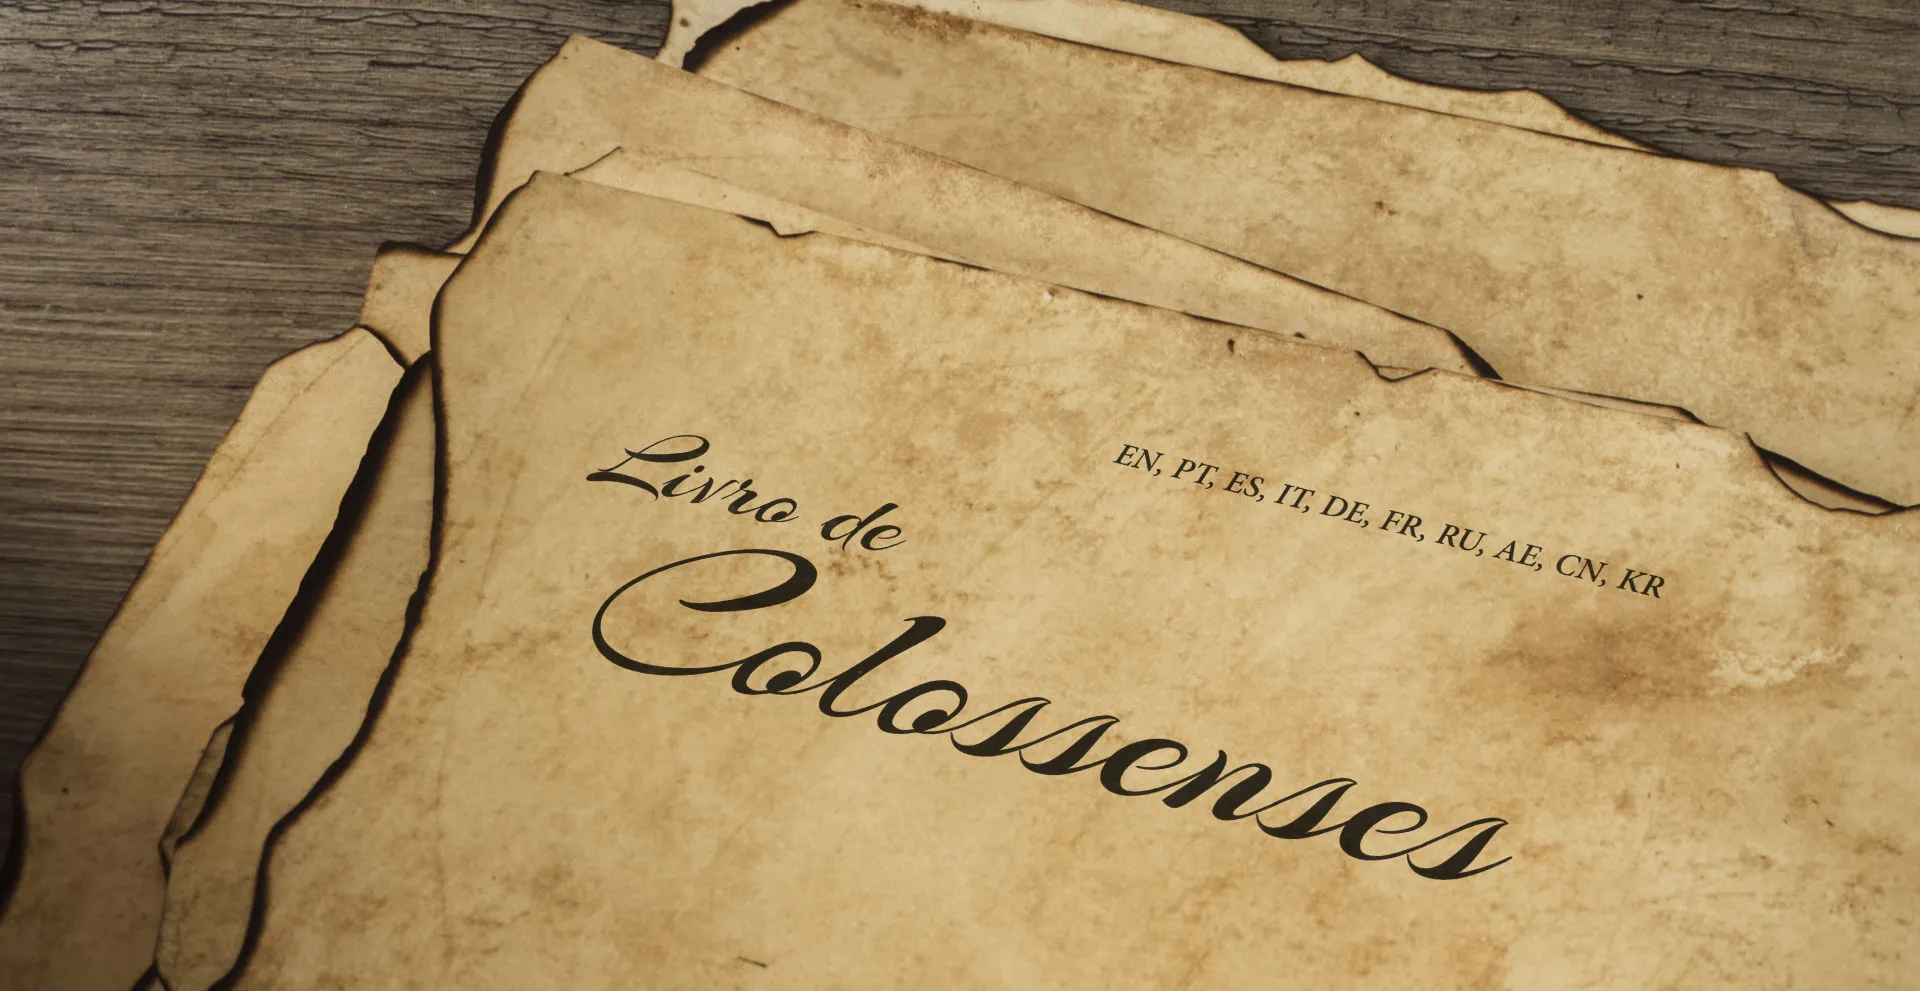 Livro de
Colossenses
EN, PT, ES, IT, DE, FR, RU, AE, CN, KR